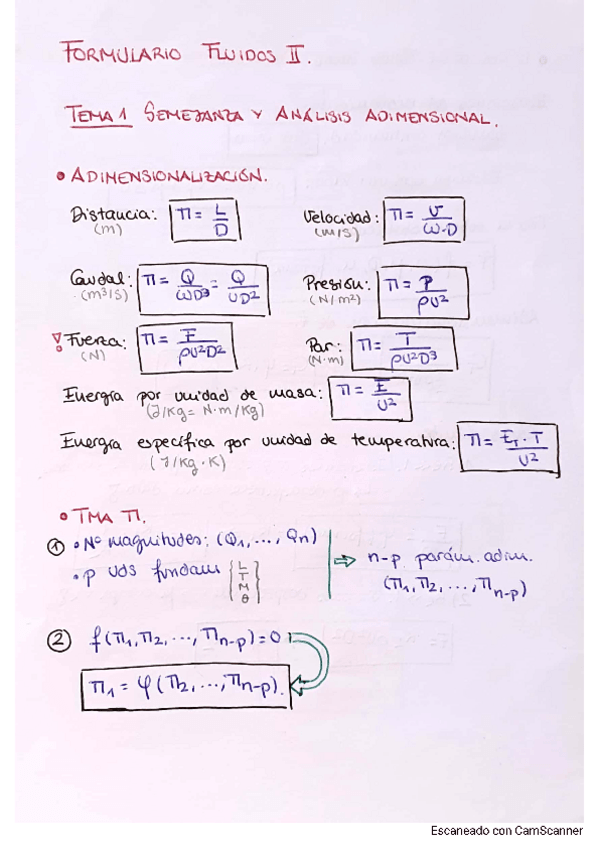 FORMULARIO FLUIDOS II.
TEMA 1 SEMEJANZA Y ANÁLISIS ADIMENSIONAL.
• ADIMENSIONALIZACIÓN.
Distancia: (m) Π = L/D Velocidad: (m/s) Π = U/(ω·D)
Caudal: (m³/s) Π = Q/(ωD³) = Q/(UD²) Presión: (N/m²) Π = P/(ρU²)
! Fuerza: (N) Π = F/(ρU²D²) Par: (N·m) Π = T/(ρU²D³)
Energía por unidad de masa: (J/Kg = N·m/Kg) Π = E/U²
Energía específica por unidad de temperatura: (J/Kg·K) Π = E_T·T/U²
• TMA Π.
① • Nº magnitudes: (Q₁, ..., Qn) ⇒ n-p. parám. adim.
• p uds fundam {L T M θ} (Π₁, Π₂, ..., Πn-p)
② f(Π₁, Π₂, ..., Πn-p) = 0
Π₁ = φ(Π₂, ..., Πn-p).
Escaneado con CamScanner